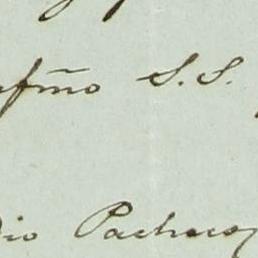 afm̃o S. S.
dio Pacheco